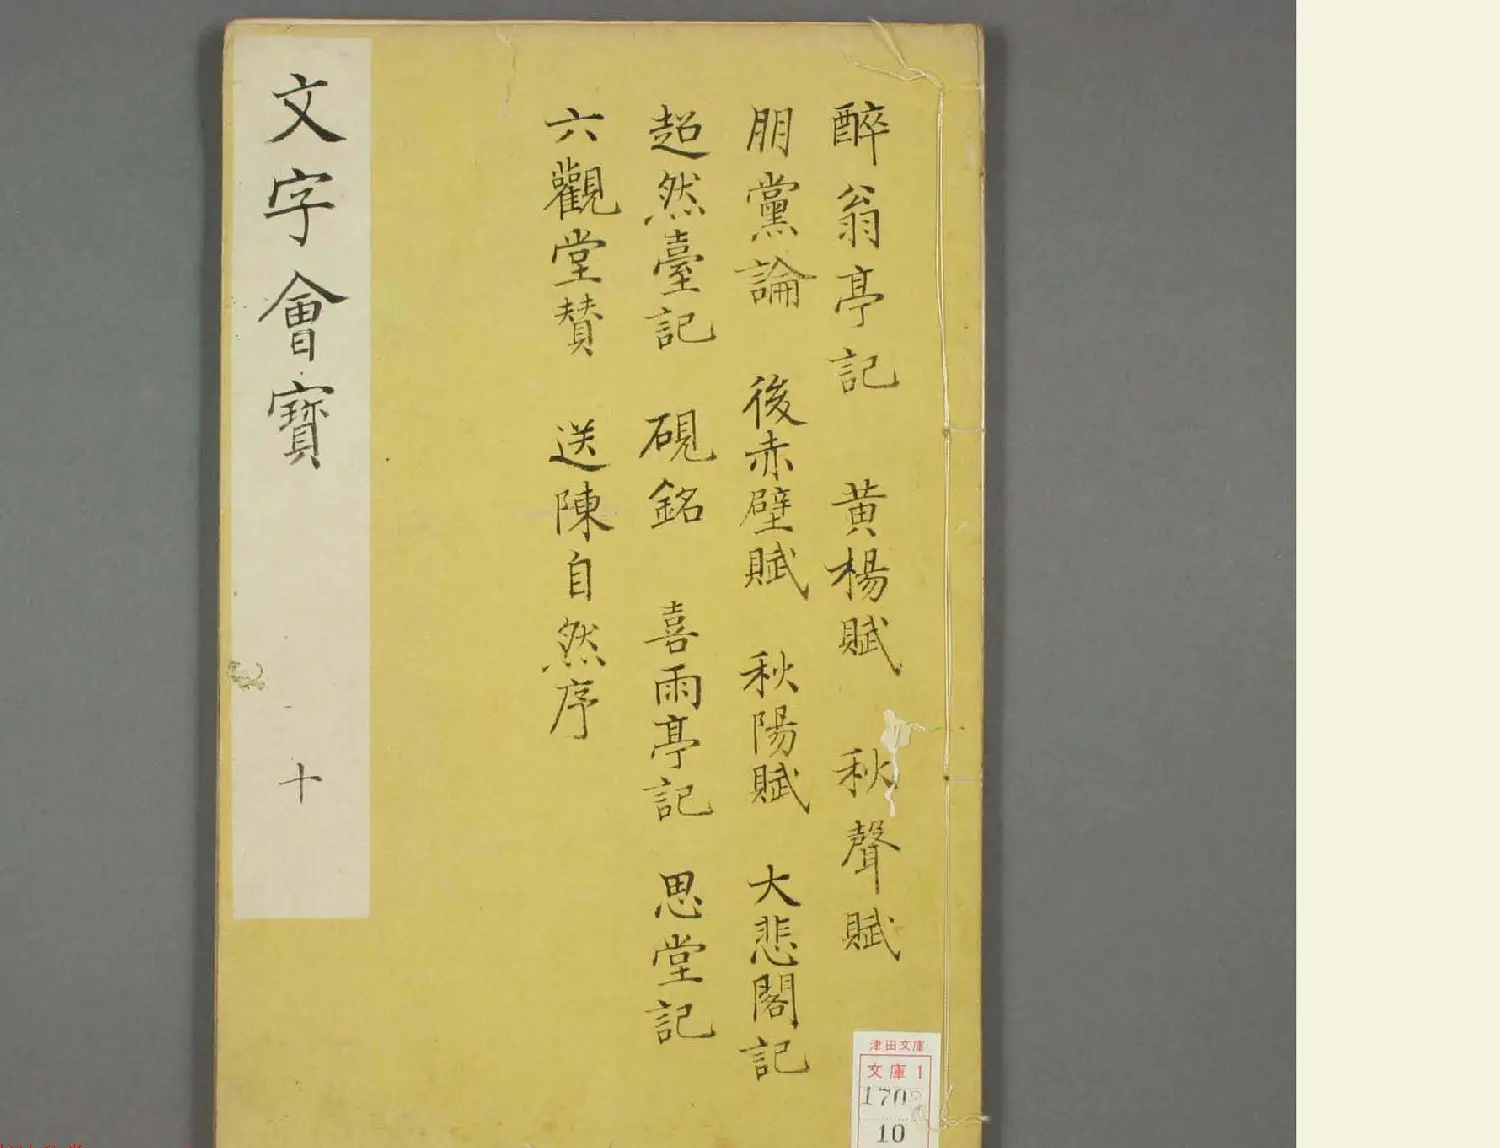 醉翁亭記　黄楊賦　秋聲賦
朋黨論　後赤壁賦　秋陽賦　大悲閣記
超然臺記　硯銘　喜雨亭記　思堂記
六觀堂賛　送陳自然序
文字會寳　十
津田文庫
文庫1
170
10